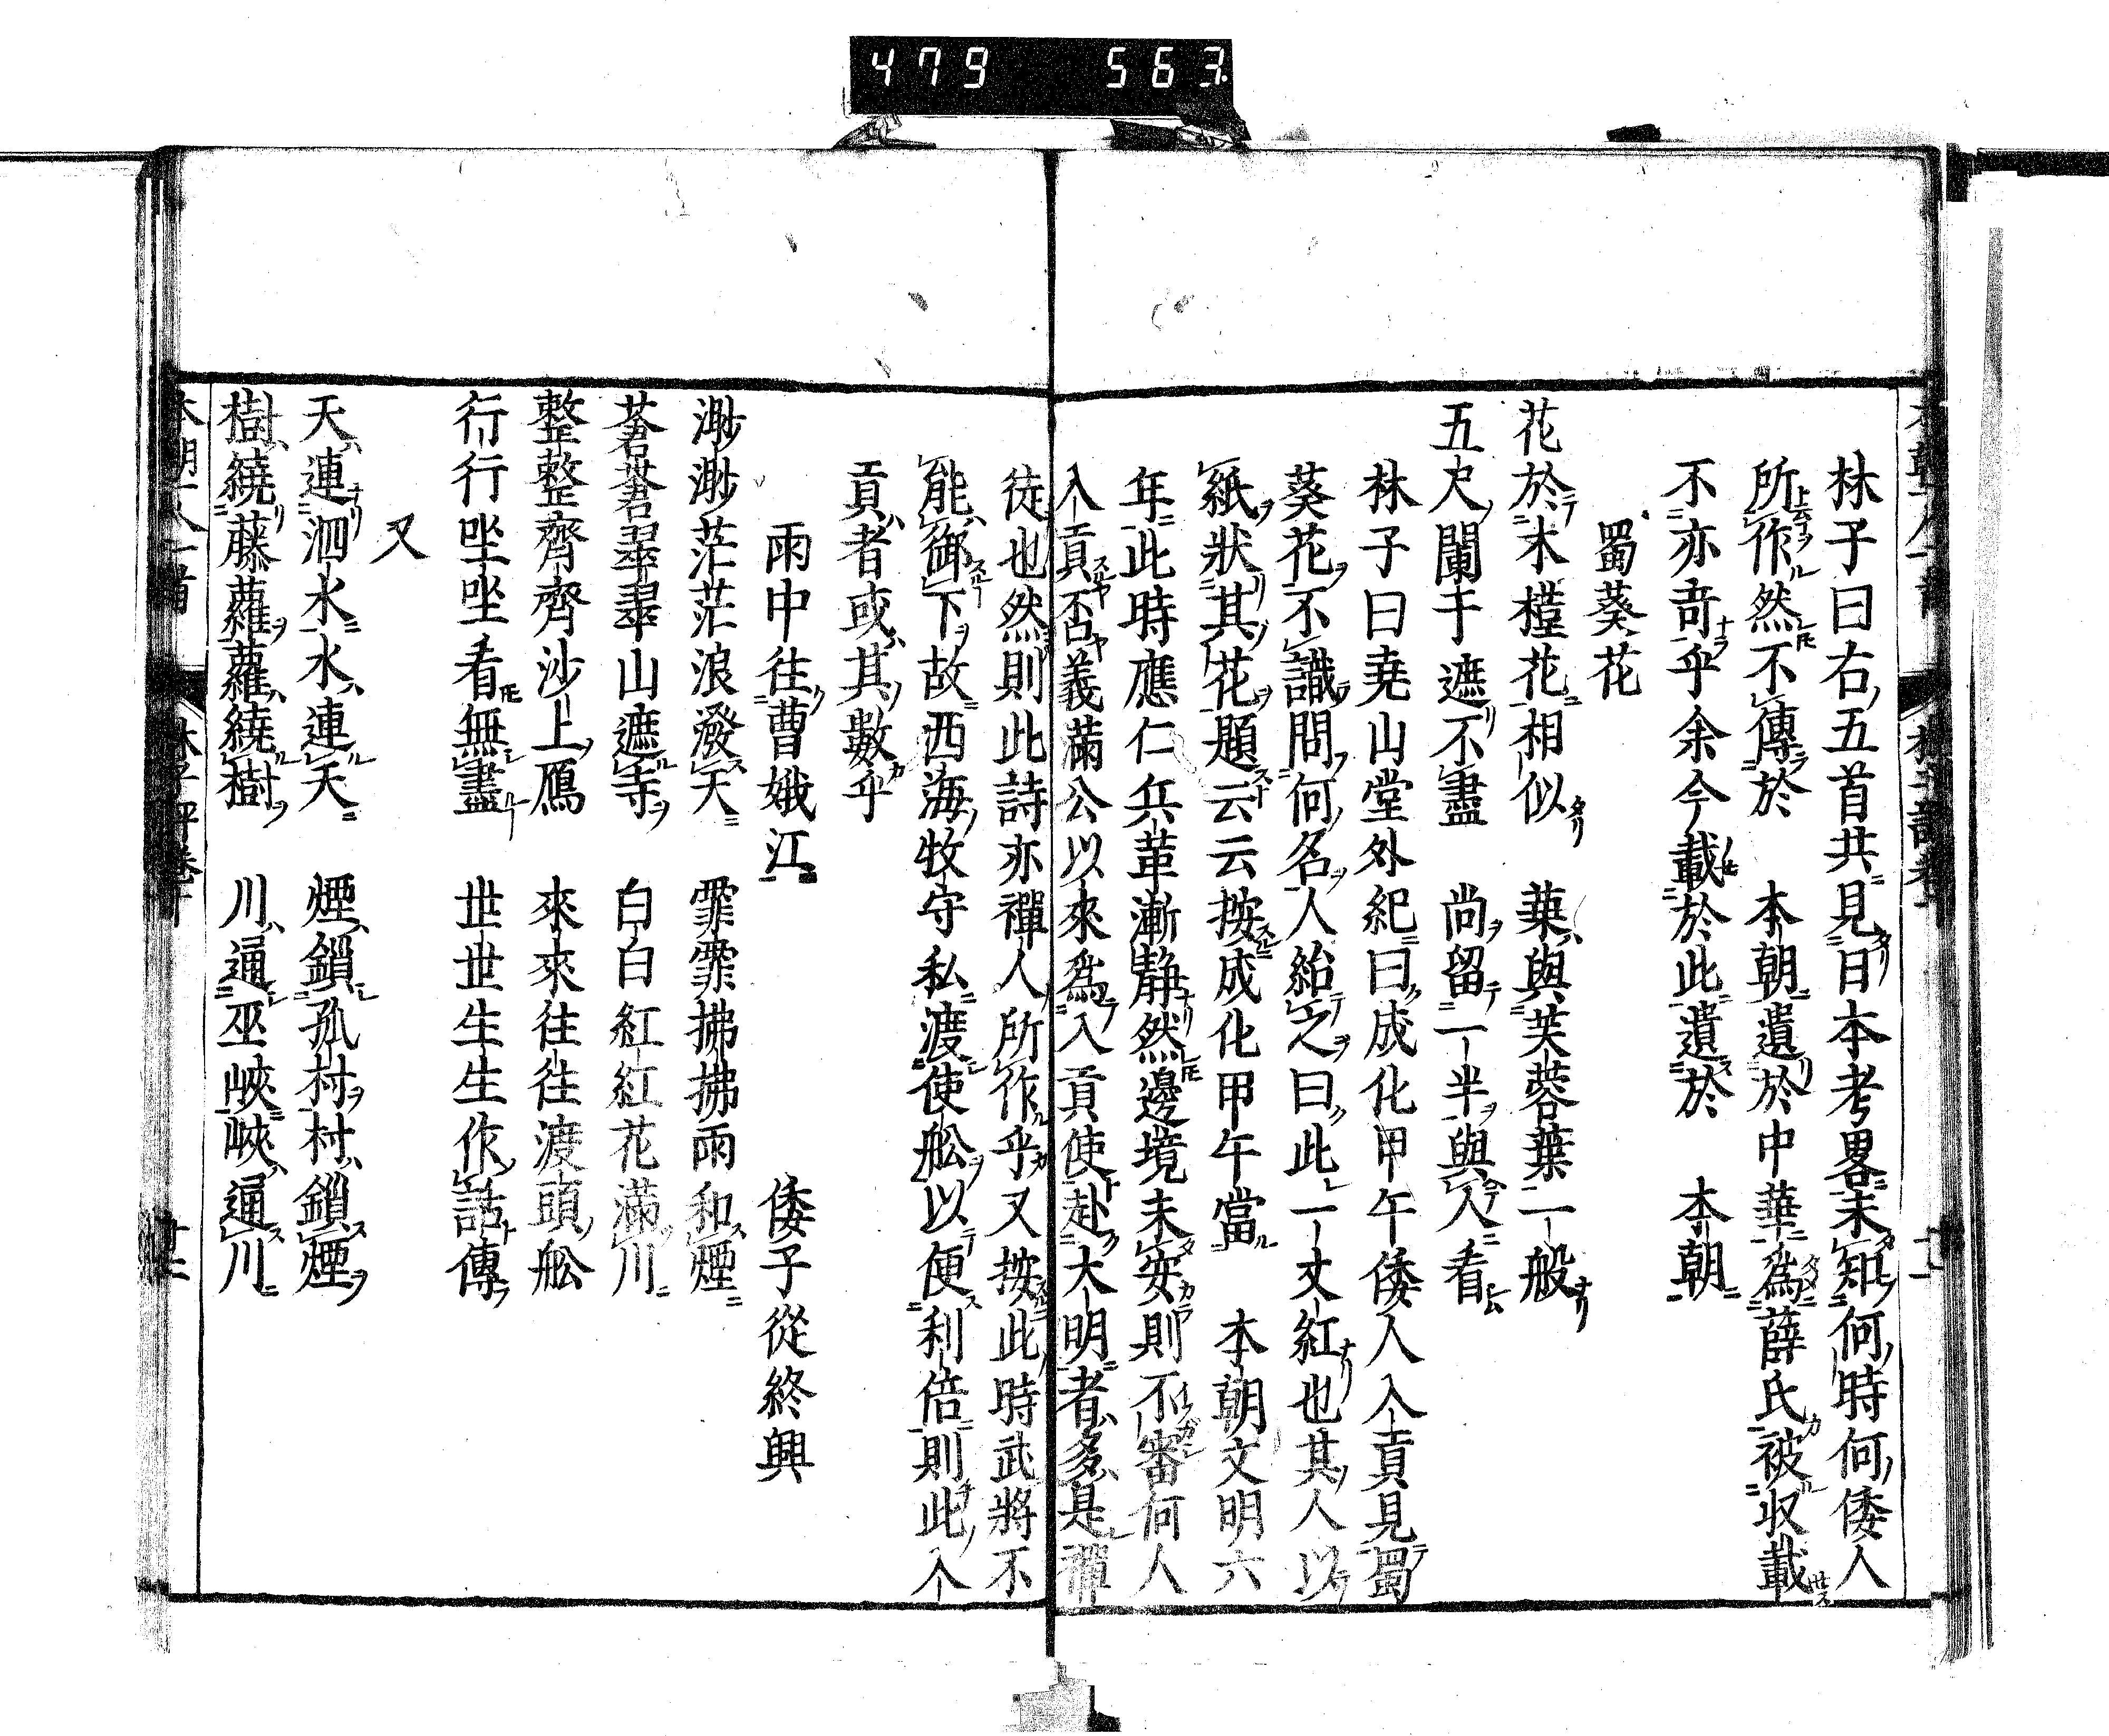 479 563
林子曰右五首共見日本考畧未知何時何倭人
所作然不傳於 本朝遺於中華爲薛氏被収載
不亦竒乎余今載於此遺於 本朝
蜀葵花
花於木槿花相似 葉與芙蓉葉一般
五尺闌干遮不盡 尚留一半與人看
林子曰堯山堂外紀曰成化甲午倭人入貢見蜀
葵花不識問何名人紿之曰此一丈紅也其人以
紙狀其花題云云按成化甲午當 本朝文明六
年此時應仁兵革漸静然邊境未安則不審何人
入貢否義滿公以來爲入貢使赴大明者多是禪
徒也然則此詩亦禪人所作乎又按此時武將不
能御下故西海牧守私渡使舩以便利倍則此入
貢者或其數乎
雨中往曹娥江 倭子從終興
渺渺茫茫浪潑天 霏霏拂拂雨和煙
蒼蒼翠翠山遮寺 白白紅紅花滿川
整整齊齊沙上鴈 來來往往渡頭舩
行行坐坐看無盡 世世生生作話傳
又
天連泗水水連天 煙鎖孤村村鎖煙
樹繞藤蘿蘿繞樹 川通巫峽峽通川
本朝一人一首 林子評卷十 十二